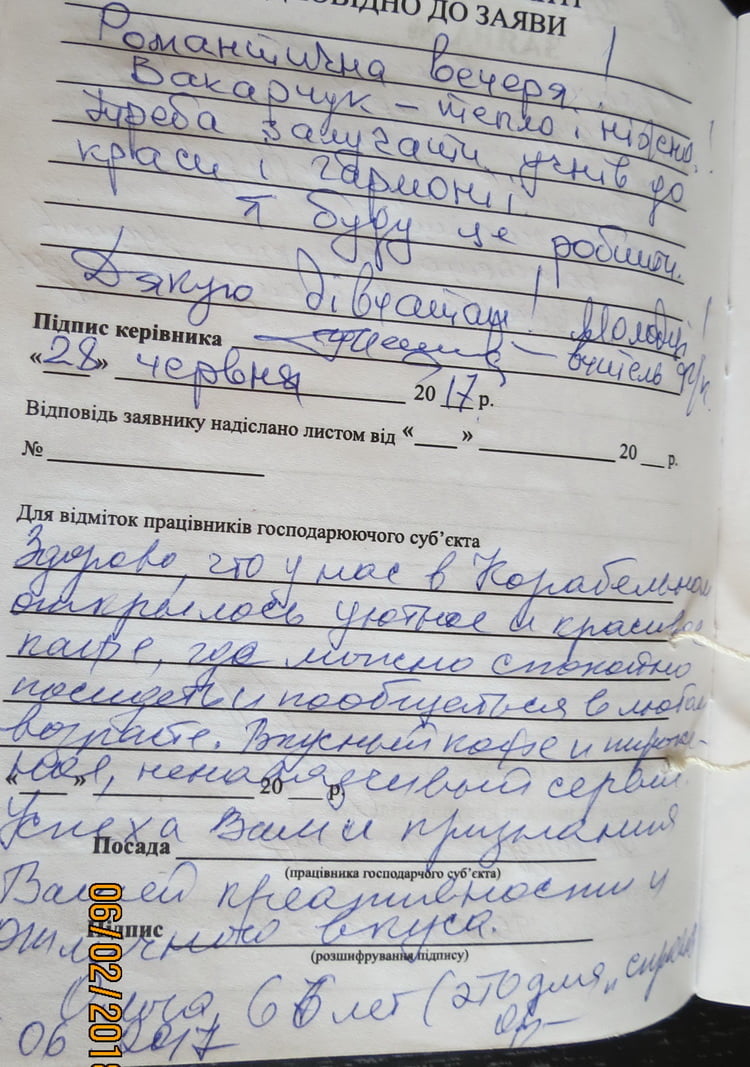 ДО ЗАЯВИ
Романтична вечеря!
Вакарчук – тепло і ніжно!
Треба залучати учнів до
краси і гармонії.
Я буду це робити.
Дякую дівчатам! Молодці!
Підпис керівника – вчитель
«28» червня 2017 р.
Відповідь заявнику надіслано листом від «___» 20 __ р.
№
Для відміток працівників господарюючого суб'єкта
Здорово, что у нас в Корабельном
открылось уютное и красивое
кафе, где можно спокойно
посидеть и пообщаться в любом
возрасте. Вкусный кофе и пироже-
ное, ненавязчивый сервис.
«___» 20 ___ р.
Успеха Вам и признания
Посада
(працівника господарчого суб'єкта)
Вашей креативности и
отличного вкуса.
Підпис
(розшифрування підпису)
лет (это для
06 2017
06/02/2018